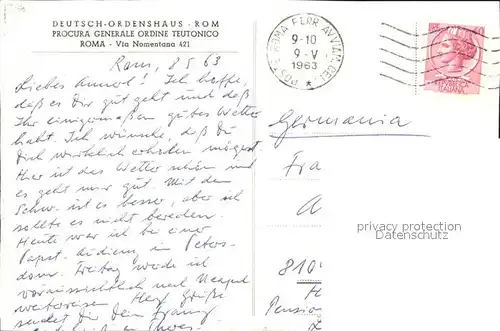 DEUTSCH-ORDENSHAUS · ROM
PROCURA GENERALE ORDINE TEUTONICO
ROMA - Via Nomentana 421
POSTE ROMA FERR AVVIAM.
9-10
9-V
1963
ITALIANA
Rom, 8 5 63
Liebes ! Ich hoffe,
daß es Dir gut geht und daß
Ihr einigermaßen gutes Wetter
habt. Ich wünsche, daß Du
Dich wirklich erholen mögest.
Hier ist das Wetter schön und
es geht mir gut. Mit dem
ist es besser, aber ich
sollte es nicht bereden.
Heute war ich bei einer
Papst-Audienz in Peters-
dom. Freitag werde ich
voraussichtlich nach Neapel
weiterreisen. Herzl. Grüße
sendet Dir
Germania
Fra
A
privacy protection
Datenschutz
810
Pension